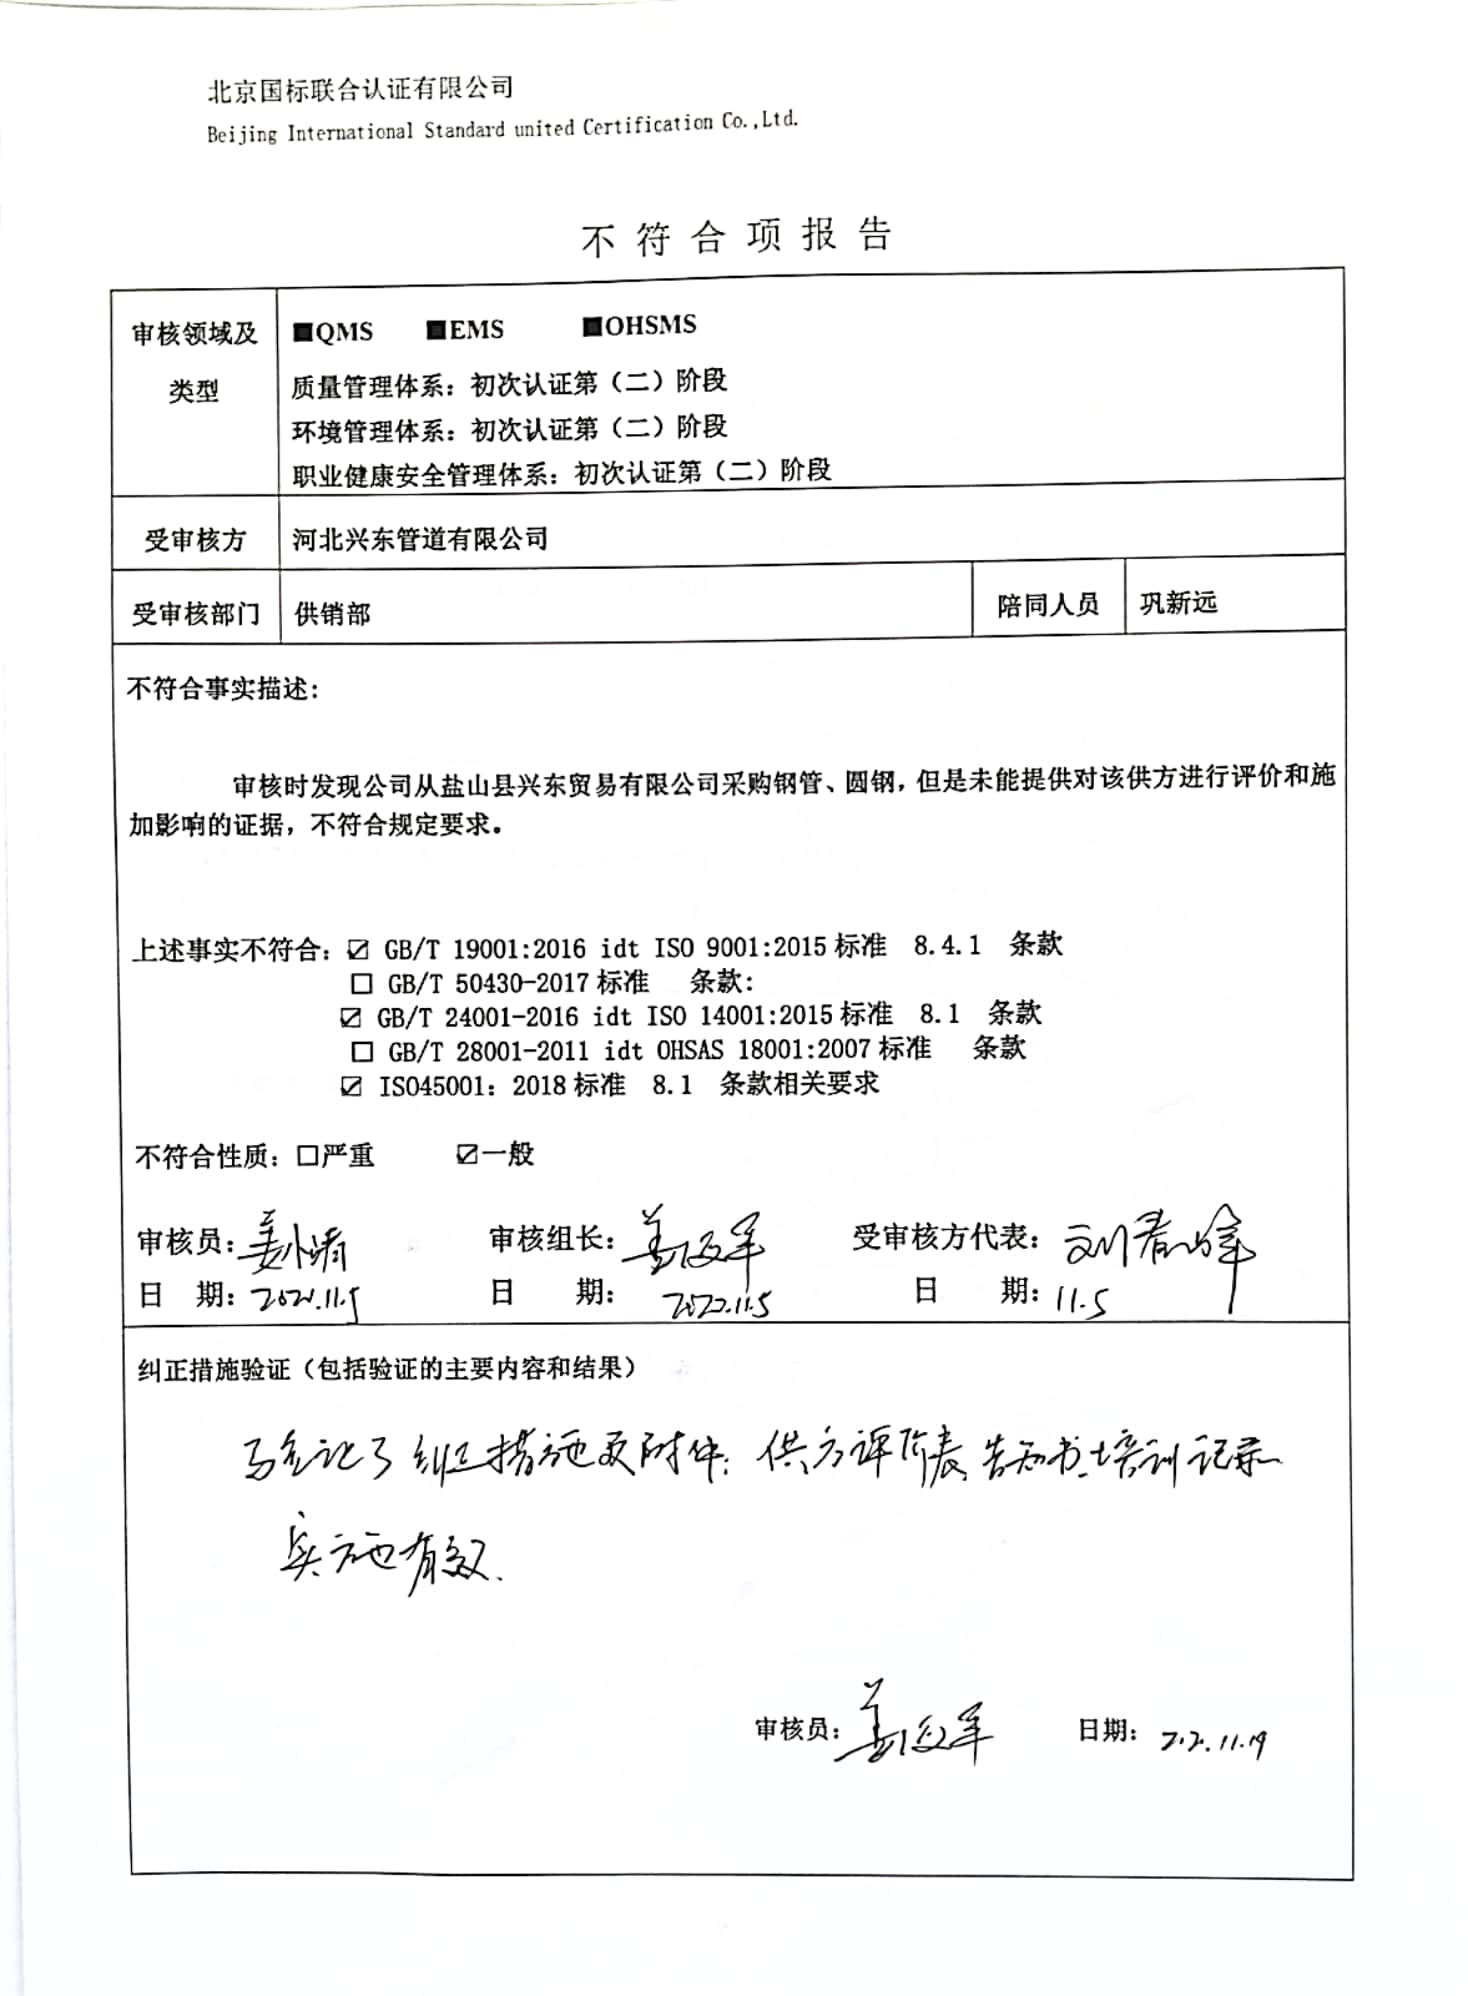 北京国标联合认证有限公司
Beijing International Standard united Certification Co.,Ltd.
不符合项报告
审核领域及类型
■QMS ■EMS ■OHSMS
质量管理体系：初次认证第（二）阶段
环境管理体系：初次认证第（二）阶段
职业健康安全管理体系：初次认证第（二）阶段
受审核方 河北兴东管道有限公司
受审核部门 供销部 陪同人员 巩新远
不符合事实描述：
审核时发现公司从盐山县兴东贸易有限公司采购钢管、圆钢，但是未能提供对该供方进行评价和施
加影响的证据，不符合规定要求。
上述事实不符合：☑ GB/T 19001:2016 idt ISO 9001:2015标准 8.4.1 条款
□ GB/T 50430-2017标准 条款：
☑ GB/T 24001-2016 idt ISO 14001:2015标准 8.1 条款
□ GB/T 28001-2011 idt OHSAS 18001:2007标准 条款
☑ ISO45001：2018标准 8.1 条款相关要求
不符合性质：□严重 ☑一般
审核员： 审核组长： 受审核方代表：
日 期： 日 期： 日 期：11.5
纠正措施验证（包括验证的主要内容和结果）
验证了纠正措施及附件：供方评价表、告知书、培训记录
实施有效.
审核员： 日期：